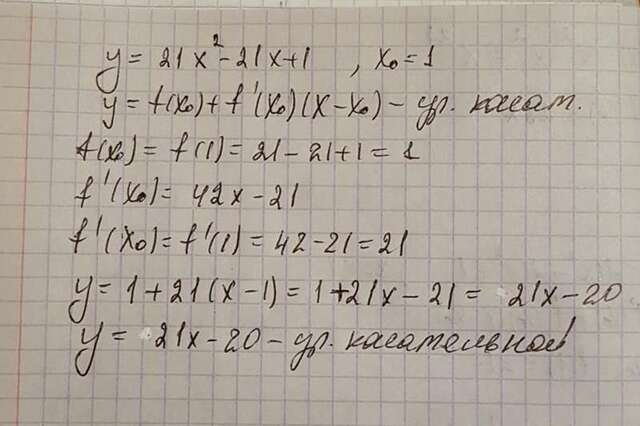 y = 21x² - 21x + 1 , x₀ = 1
y = f(x₀) + f'(x₀)(x - x₀) - ур. касат.
f(x₀) = f(1) = 21 - 21 + 1 = 1
f'(x₀) = 42x - 21
f'(x₀) = f'(1) = 42 - 21 = 21
y = 1 + 21(x - 1) = 1 + 21x - 21 = 21x - 20
y = 21x - 20 - ур. касательной